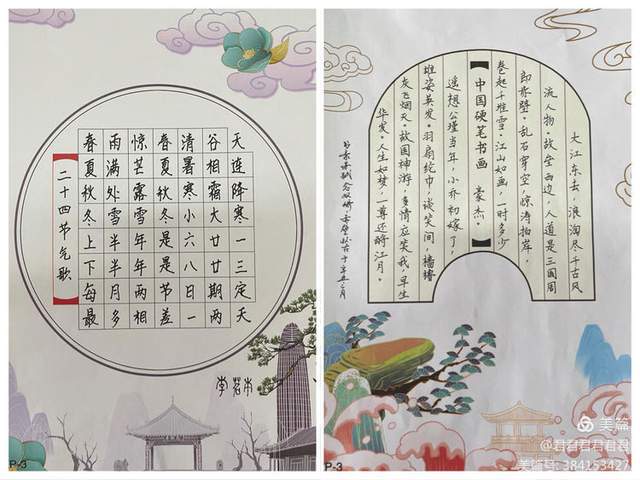 二十四节气歌
春雨惊春清谷天
夏满芒夏暑相连
秋处露秋寒霜降
冬雪雪冬小大寒
上半年是六廿一
下半年是八廿三
每月两节日期定
最多相差一两天
李茗本
P-3
大江东去，浪淘尽千古风
流人物。故垒西边，人道是三国周
郎赤壁。乱石穿空，惊涛拍岸，
卷起千堆雪。江山如画，一时多少
【中国硬笔书画 豪杰。】
遥想公瑾当年，小乔初嫁了，
雄姿英发。羽扇纶巾，谈笑间，樯橹
灰飞烟灭。故国神游，多情应笑我，早生
华发。人生如梦，一尊还酹江月。
P-3
美篇
@君君君君君君
美篇号: 384153427